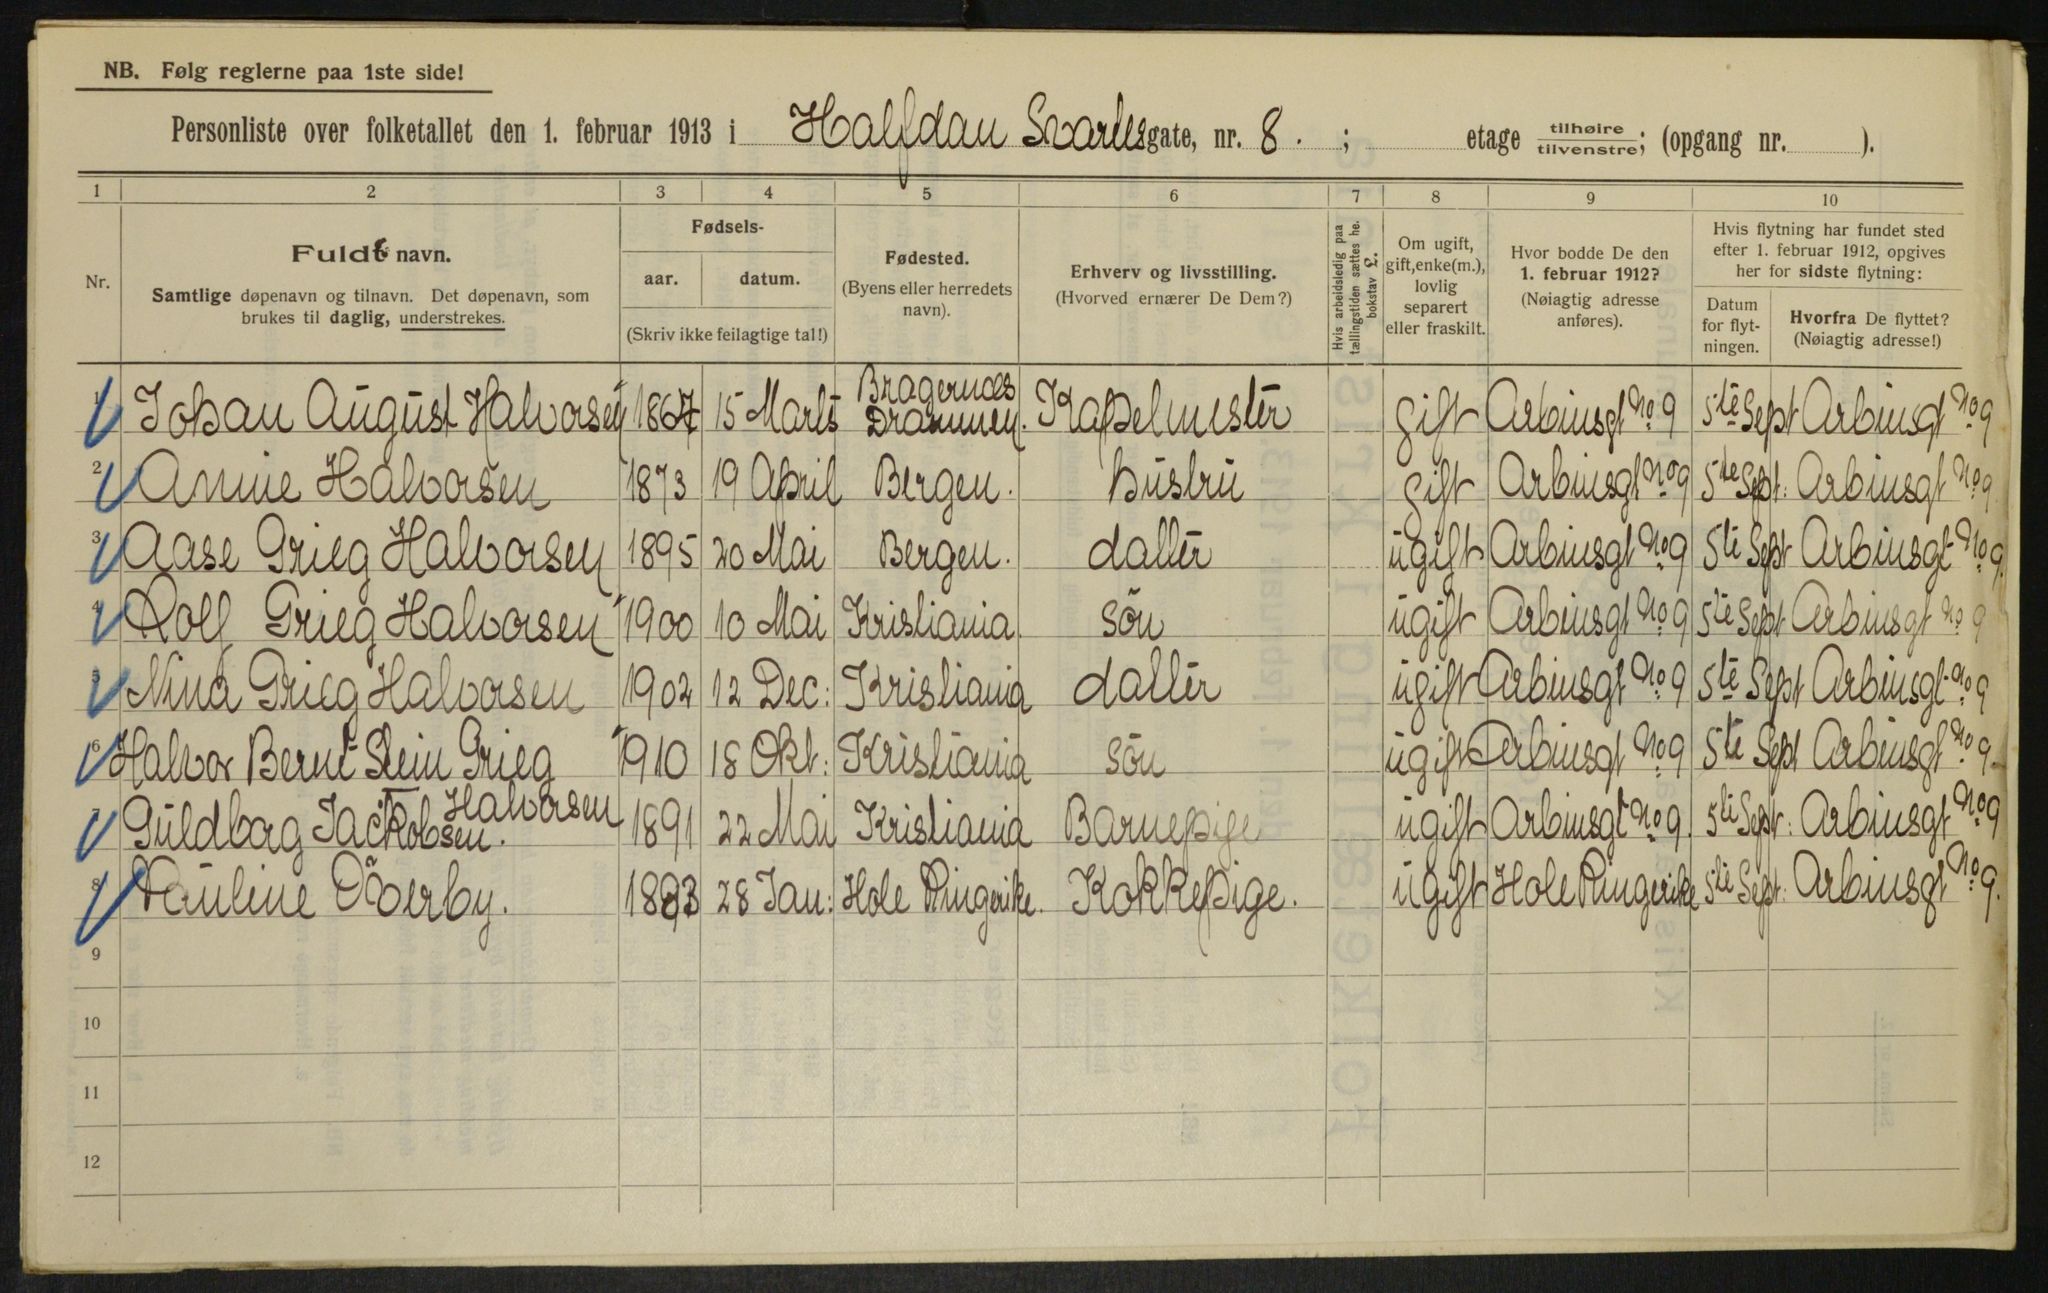 NB. Følg reglerne paa 1ste side!
Personliste over folketallet den 1. februar 1913 i Halfdan Svartesgate, nr. 8. ; etage tilhøire tilvenstre; (opgang nr. ).
1 2 3 4 5 6 7 8 9 10
Nr.
Fuldt navn.
Samtlige døpenavn og tilnavn. Det døpenavn, som
brukes til daglig, understrekes.
Fødsels-
aar. datum.
(Skriv ikke feilagtige tal!)
Fødested.
(Byens eller herredets
navn).
Erhverv og livsstilling.
(Hvorved ernærer De Dem?)
Hvis arbeidsledig paa
tællingstiden sættes her
bokstav L.
Om ugift,
gift, enke(m.),
lovlig
separert
eller fraskilt.
Hvor bodde De den
1. februar 1912?
(Nøiagtig adresse
anføres).
Hvis flytning har fundet sted
efter 1. februar 1912, opgives
her for sidste flytning:
Datum
for flyt-
ningen.
Hvorfra De flyttet?
(Nøiagtig adresse!)
1 Johan August Halvorsen 1864 15 Marts Bragernæs Drammen. Kapelmester gift Arbinsgt No 9 5te Sept Arbinsgt No 9
2 Annie Halvorsen 1873 19 April Bergen. hustru gift Arbinsgt No 9 5te Sept: Arbinsgt No 9
3 Aase Grieg Halvorsen 1895 20 Mai Bergen. datter ugift Arbinsgt No 9 5te Sept Arbinsgt No 9.
4 Rolf Grieg Halvorsen 1900 10 Mai Kristiania. sön ugift Arbinsgt No 9 5te Sept Arbinsgt No 9
5 Nina Grieg Halvorsen 1902 12 Dec: Kristiania datter ugift Arbinsgt No 9 5te Sept Arbinsgt No 9
6 Halvor Bernt Stein Grieg Halvorsen 1910 18 Okt: Kristiania sön ugift Arbinsgt No 9 5te Sept Arbinsgt No 9.
7 Guldborg Jackobsen. 1891 22 Mai Kristiania Barnepige ugift Arbinsgt No 9. 5te Sept: Arbinsgt No 9
8 Pauline Överby. 1893 28 Jan: Hole Ringerike. Kokkepige. ugift Hole Ringerike 5te Sept: Arbinsgt No 9.
9
10
11
12